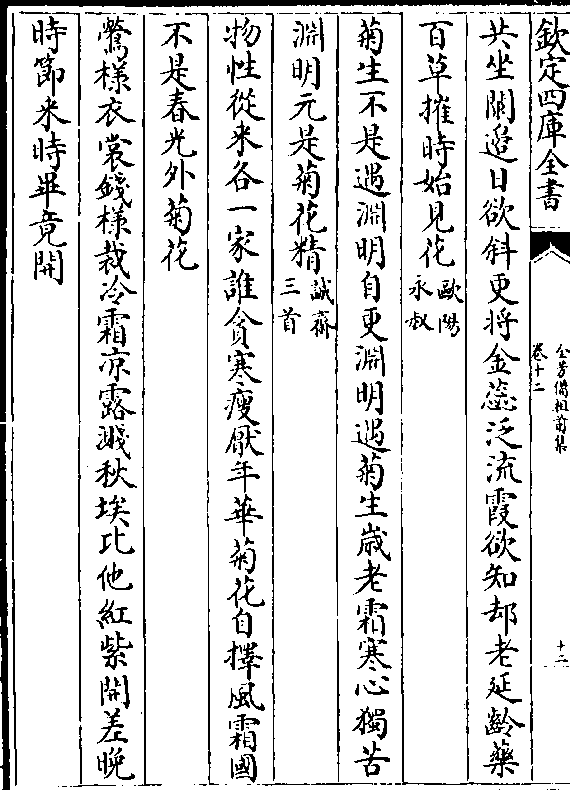 欽定四庫全書
全芳備祖前集
卷十二
十二
共坐闌邉日欲斜更將金蕊泛流霞欲知却老延齡藥
百草摧時始見花
歐陽
永叔
菊生不是遇淵明自更淵明遇菊生嵗老霜寒心獨苦
淵明元是菊花精
誠齋
三首
物性從來各一家誰貪寒瘦厭年華菊花自擇風霜國
不是春光外菊花
鶯様衣裳錢様裁冷霜凉露濺秋埃比他紅紫開差晚
時節來時畢竟開